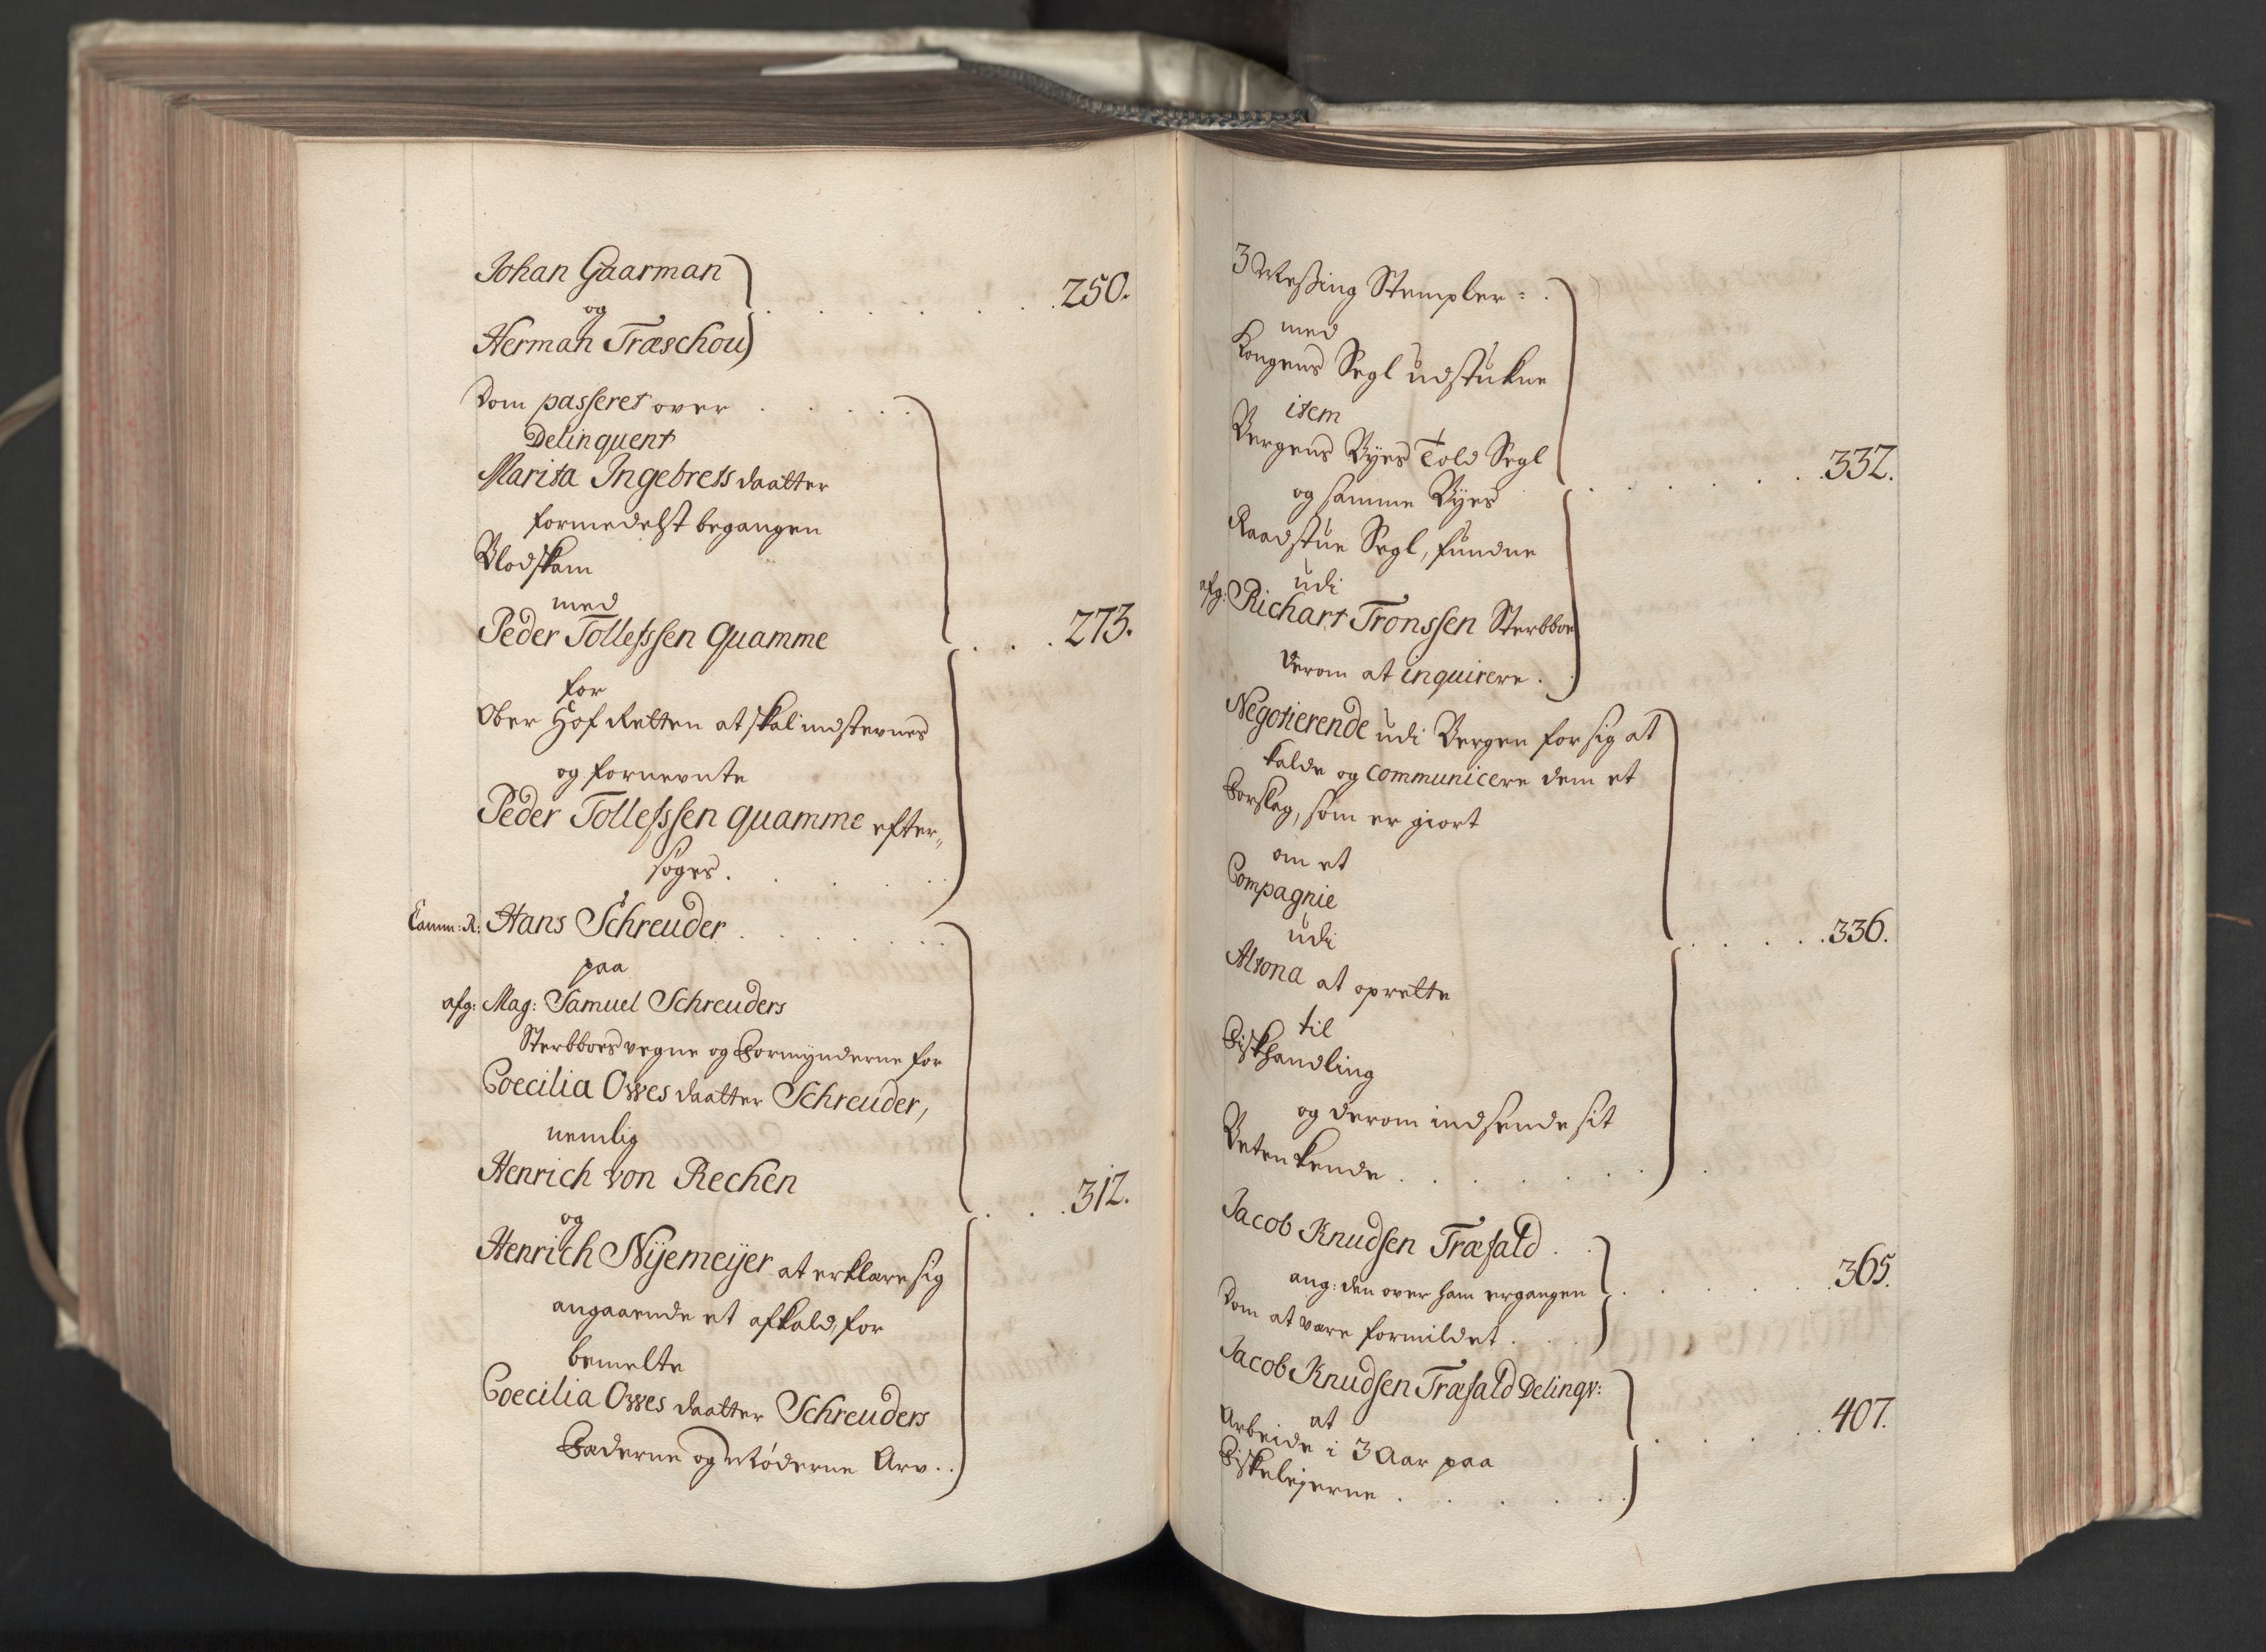 Johan Gaarman
og
Herman Træschou
250.
Dom passeret over
Delinquent
Marita Ingebrets daatter
formedelst begangen
Blodskam
med
Peder Tollefssen Quamme
273.
for
Ober Hof Retten at skal indstevnes
og fornevnte
Peder Tollefssen quamme efter„
søges.
Camm: R: Hans Schreuder
paa
afg: Mag: Samuel Schreuders
Sterbboes vegne og Formynderne for
Coecilia Owes daatter Schreuder,
nemlig
Henrich von Rechen
312.
og
Henrich Nijemeijer at erklære sig
angaaende et afkald, for
bemelte
Coecilia Owes daatter Schreuders
Fæderne og Møderne Arv.
3 Messing Stempler
med
Kongens Segl udstukne
item
Bergens Byes Told Segl
332.
og samme Byes
Raadstue Segl, fundne
udi
afg: Richart Tronssen Sterbboe
derom at inquirere.
Negotierende udi Bergen for sig at
kalde og communicere dem et
Forslag, som er giort
om et
Compagnie
udi
336.
Altona at oprette
til
Fiskhandling
og derom indsende sit
Betenkende
Jacob Knudsen Træfald
ang: den over ham ergangen
365.
Dom at være formildet
Jacob Knudsen Træfald Delinqv:
at
407.
Arbeide i 3 Aar paa
Fiskelejerne